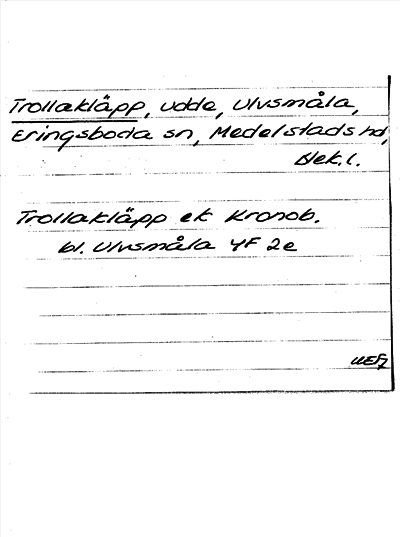 Trollakläpp, udde, Ulvsmåla,
Eringsboda sn, Medelstads hd,
Blek. l.
Trollakläpp ek Kronob.
bl. Ulvsmåla 4F 2e